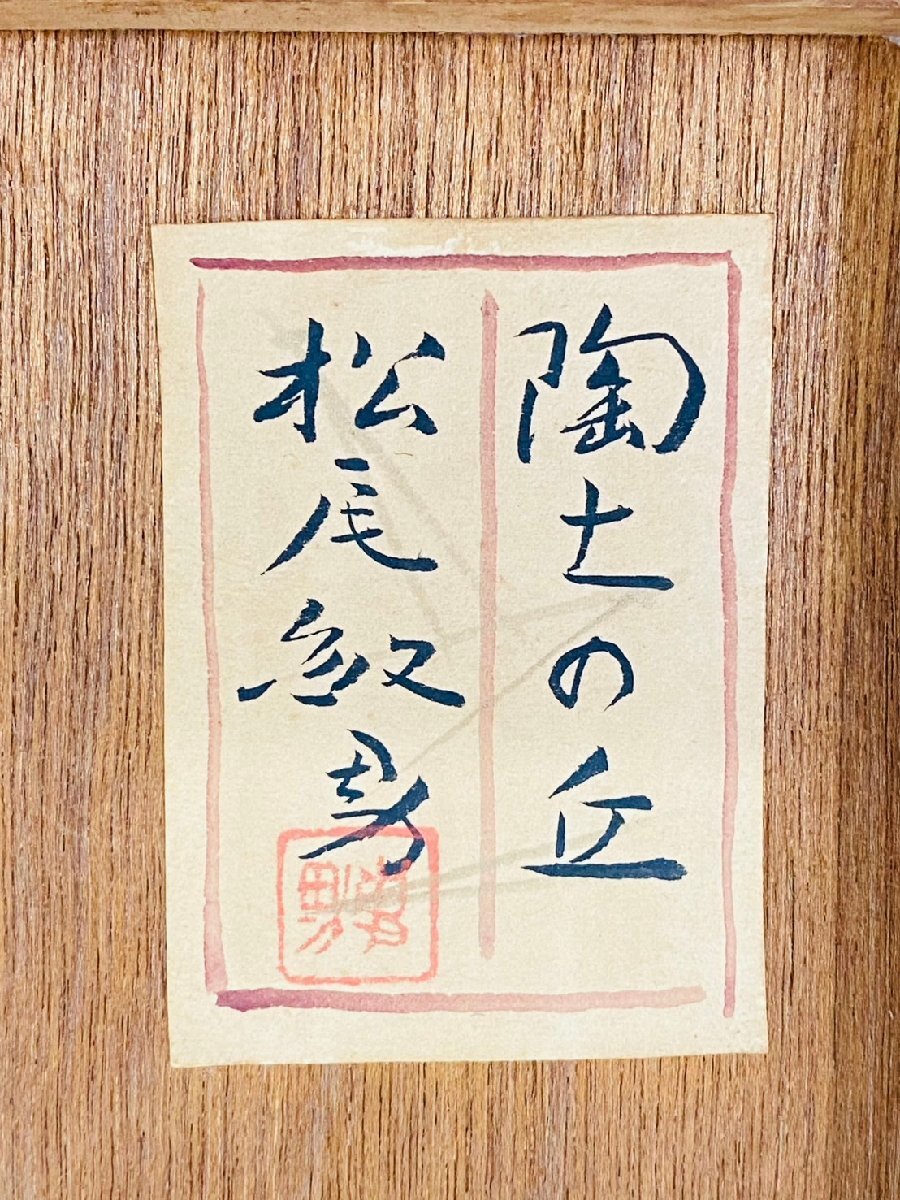 陶土の丘
松尾敏男